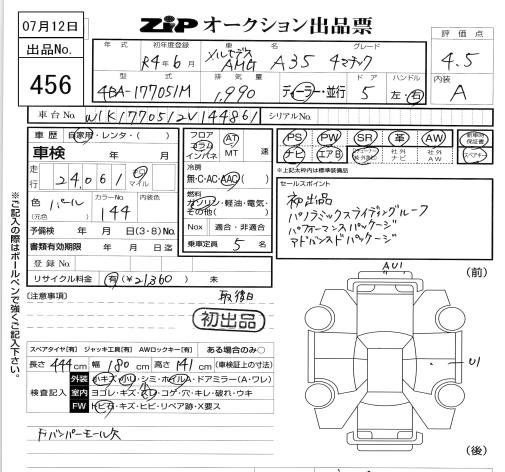 07月12日
出品No.
456
ZIP オークション出品票
評価点
4.5
内装
A
年式
初年度登録
R4年6月
車名
メルセデス AMG A35 4マチック
グレード
型式
4BA-177051M
排気量
1,990
ディーラー・並行
ドア
5
ハンドル
左・右
車台No.
W1K1770512V144861
シリアルNo.
車歴 自家用・レンタ・( )
車検 年 月
走行
24,061
キロ
マイル
色
(元色)
パール
カラーNo.
144
内装色
予備検 年 月 日(3・8)No.
書類有効期限 年 月 日迄
登録No.
リサイクル料金 有(¥21,360) 未
フロア
コラム
インパネ
AT
MT
速
冷房
無・C・AC・AAC
燃料
ガソリン・軽油・電気・
その他( )
Nox 適合・非適合
乗車定員 5 名
PS PW SR 革 AW
新車時保証書
ナビ エアB
社外ナビ
社外AW
スペアキー
※上記太枠内は標準装備品
セールスポイント
初出品
パノラミックスライディングルーフ
パフォーマンスパッケージ
アドバンスドパッケージ
※ご記入の際はボールペンで強くご記入下さい。
[注意事項]
取後日
初出品
スペアタイヤ[有] ジャッキ工具[有] AWロックキー[有] ある場合のみ○
長さ 444 cm 幅 180 cm 高さ 141 cm (車検証上の寸法)
検査記入
外装 小キズ・小凹・シミ・ホイルA・ドアミラー(A・ワレ)
室内 ヨゴレ・キズ・スレ・コゲ・穴・キレ・破れ・ウキ
FW トビ石・キズ・ヒビ・リペア跡・X要ス
Fバンパーモール欠
(前)
AU1
U1
(後)